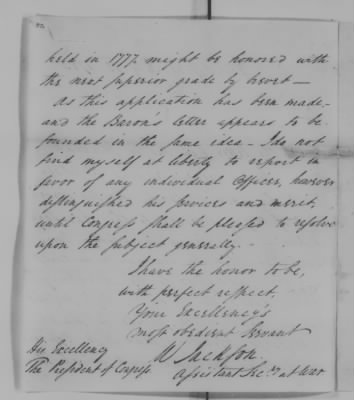 held in 1777. might be honored with
the next superior grade by brevet —
As this application has been made —
and the Baron's letter appears to be
founded in the same idea — I do not
find myself at liberty to report in
favor of any individual Officer, however
distinguished his services and merit,
until Congress shall be pleased to resolve
upon the subject generally. —
I have the honor to be,
with perfect respect,
Your Excellency's
most obedient Servant
W Jackson.
Assistant Secy at War
His Excellency
The President of Congress